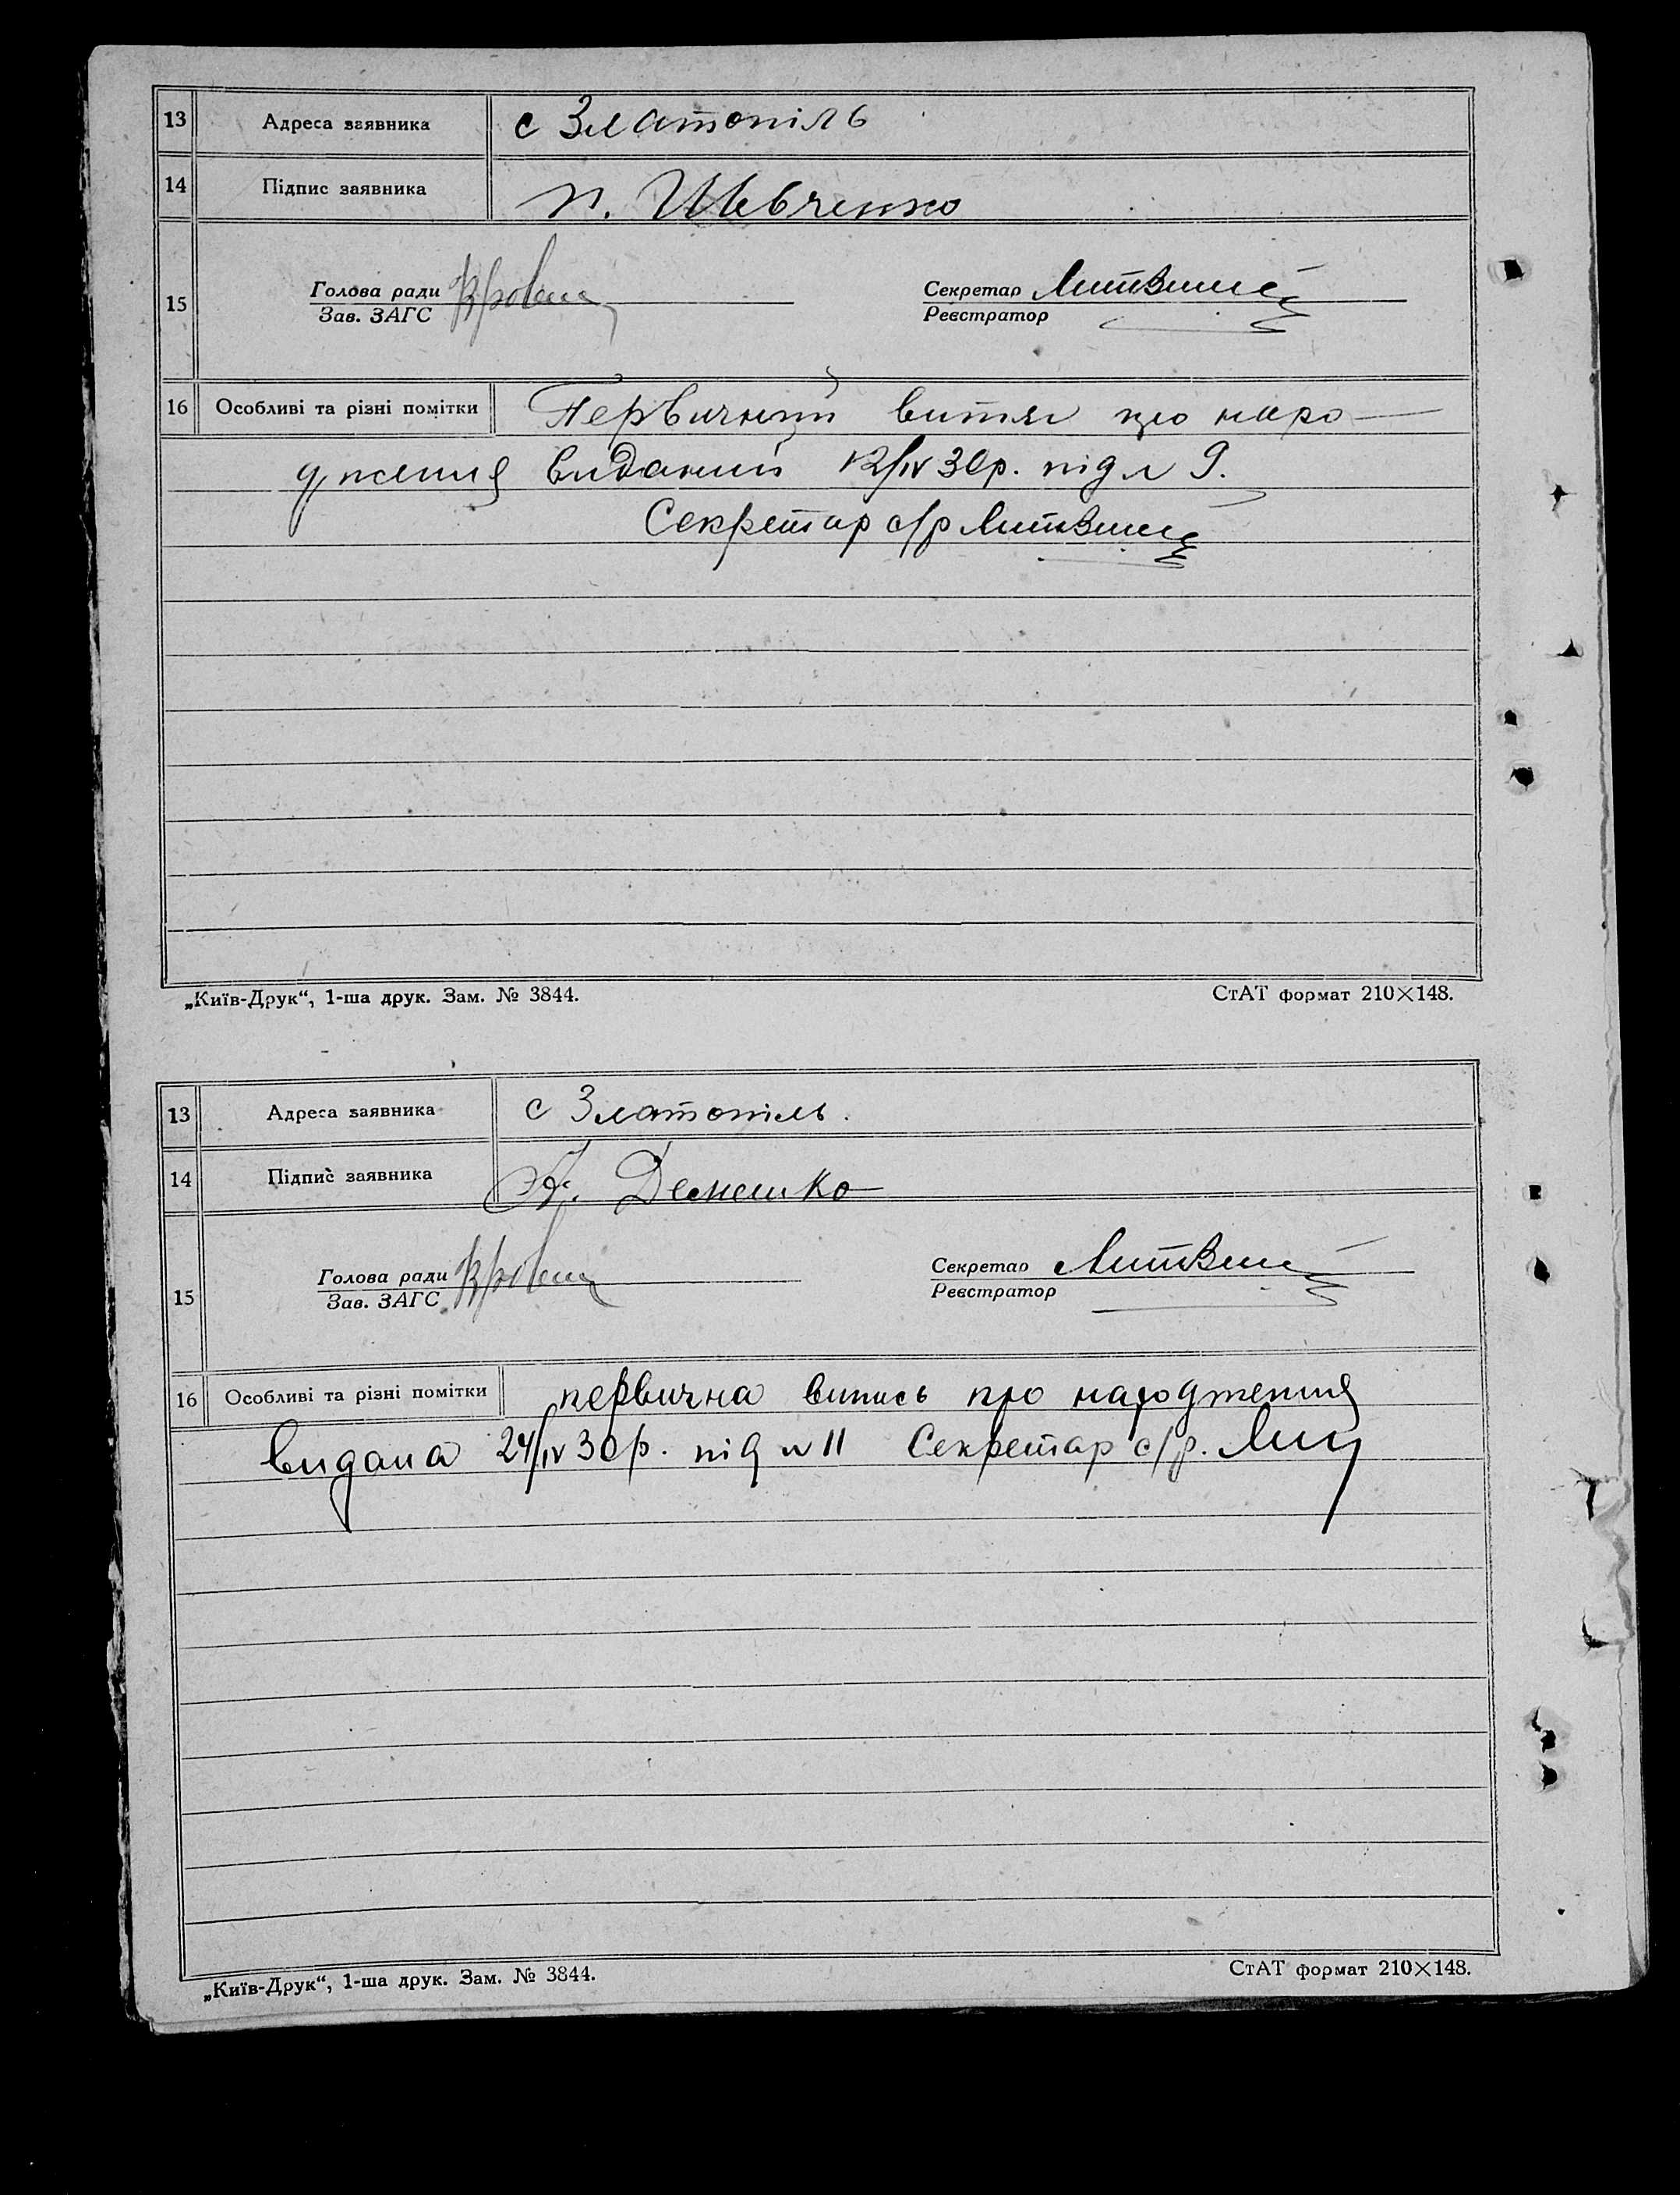 13 Адреса заявника с Златопіль
14 Підпис заявника п. Шевченко
15 Голова ради Секретар Литвин
Зав. ЗАГС Реєстратор
16 Особливі та різні помітки Первичний витяг про наро-
дження виданий 12/IV 30р. під № 9.
Секретар с/р Литвин
„Київ-Друк“, 1-ша друк. Зам. № 3844. СтАТ формат 210×148.
13 Адреса заявника с Златопіль.
14 Підпис заявника А. Демешко
15 Голова ради Секретар Литвин
Зав. ЗАГС Реєстратор
16 Особливі та різні помітки первична випись про народження
видана 24/IV 30р. під № 11 Секретар с/р.
„Київ-Друк“, 1-ша друк. Зам. № 3844. СтАТ формат 210×148.